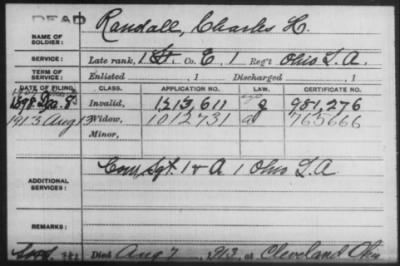 DEAD
NAME OF SOLDIER: Randall, Charles H.
SERVICE: Late rank, 1 Lt. Co. E, 1 Reg't Ohio L. A.
TERM OF SERVICE: Enlisted , 1 Discharged , 1
DATE OF FILING. CLASS. APPLICATION NO. LAW. CERTIFICATE NO.
1897 Dec. 8 Invalid, 1213,611 g 981,276
1913 Aug 13 Widow, 1012731 a 765666
Minor,
ADDITIONAL SERVICES: Com. Sgt. 1 & A 1 Ohio L A
REMARKS:
Died Aug 7, 1913, at Cleveland Ohio